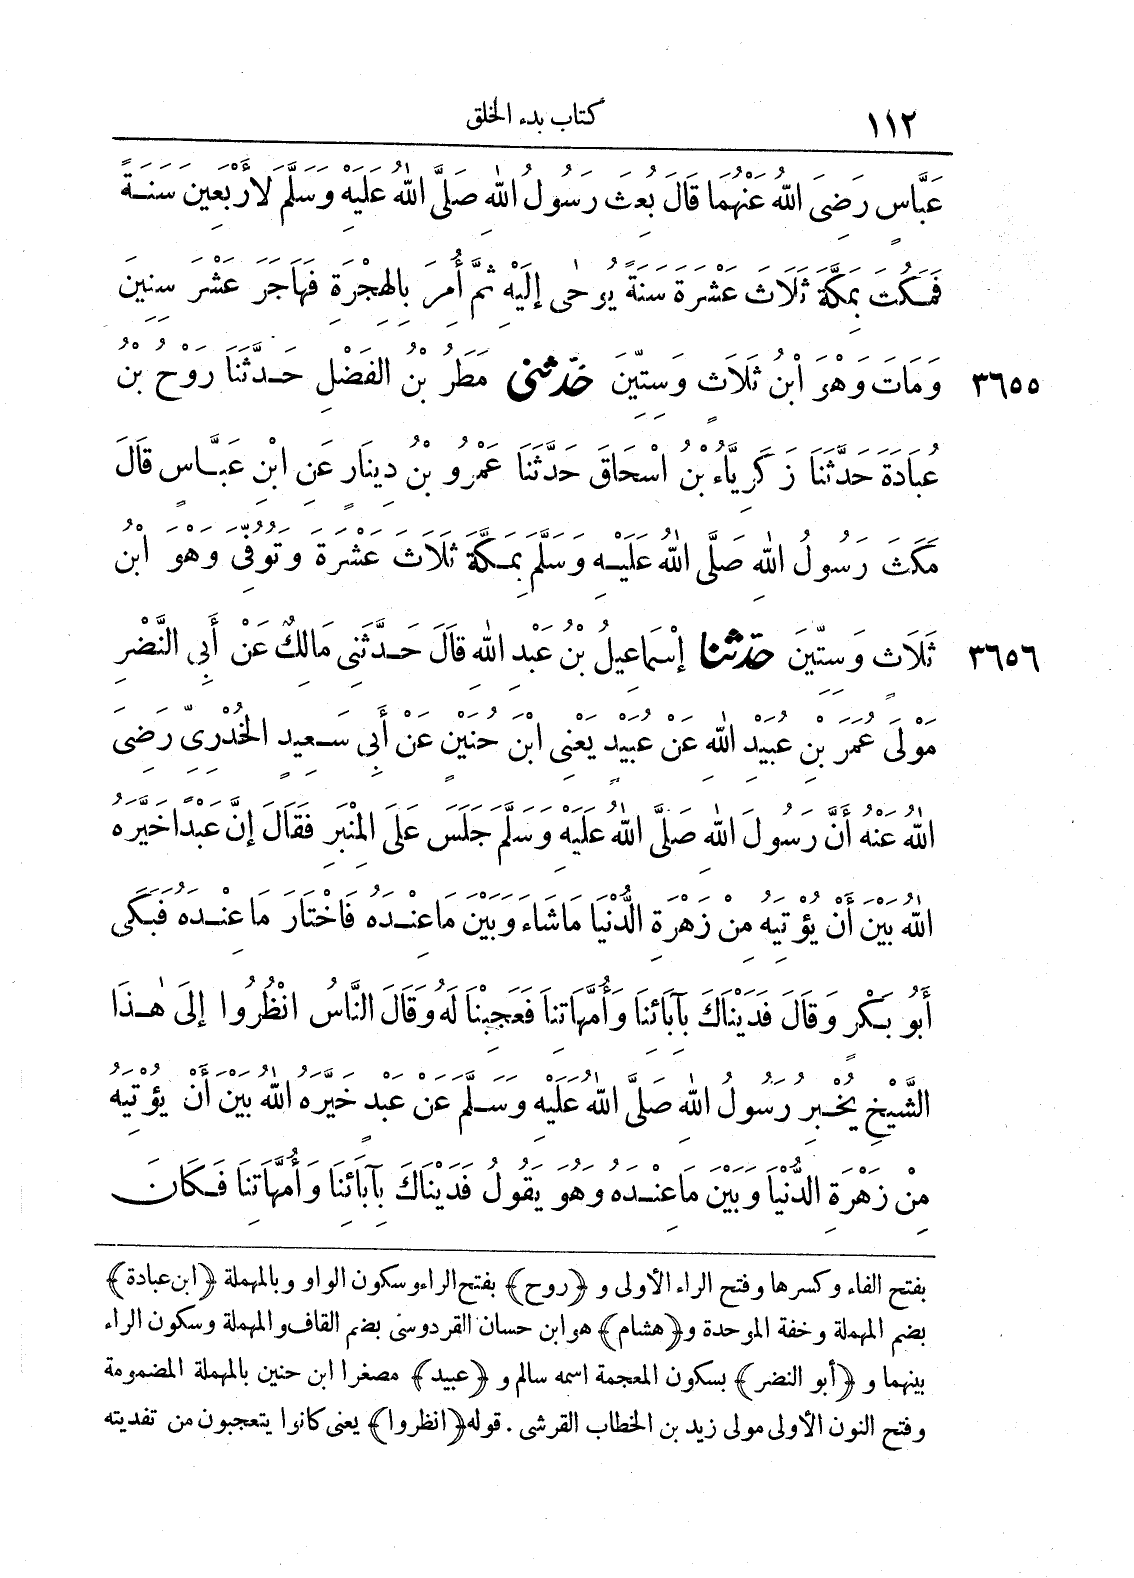 ١١٢ كتاب بدء الخلق
عَبَّاسٍ رَضِىَ اللهُ عَنْهُمَا قَالَ بُعِثَ رَسُولُ اللهِ صَلَّى اللهُ عَلَيْهِ وَسَلَّمَ لأَرْبَعِينَ سَنَةً
فَمَكُثَ بِمَكَّةَ ثَلَاثَ عَشْرَةَ سَنَةً يُوحَى إِلَيْهِ ثُمَّ أُمِرَ بِالْهِجْرَةِ فَهَاجَرَ عَشْرَ سِنِينَ
٣٦٥٥ وَمَاتَ وَهُوَ ابْنُ ثَلَاثٍ وَسِتِّينَ حَدَّثَنِى مَطَرُ بْنُ الْفَضْلِ حَدَّثَنَا رَوْحُ بْنُ
عُبَادَةَ حَدَّثَنَا زَكَرِيَّاءُ بْنُ اسْحَاقَ حَدَّثَنَا عَمْرُو بْنُ دِينَارٍ عَنِ ابْنِ عَبَّاسٍ قَالَ
مَكَثَ رَسُولُ اللهِ صَلَّى اللهُ عَلَيْهِ وَسَلَّمَ بِمَكَّةَ ثَلَاثَ عَشْرَةَ وَتُوُفِّىَ وَهْوَ ابْنُ
٣٦٥٦ ثَلَاثٍ وَسِتِّينَ حَدَّثَنَا إِسْمَاعِيلُ بْنُ عَبْدِ اللهِ قَالَ حَدَّثَنِى مَالِكٌ عَنْ أَبِى النَّضْرِ
مَوْلَى عُمَرَ بْنِ عُبَيْدِ اللهِ عَنْ عُبَيْدٍ يَعْنِى ابْنَ حُنَيْنٍ عَنْ أَبِى سَعِيدٍ الْخُدْرِىِّ رَضِىَ
اللهُ عَنْهُ أَنَّ رَسُولَ اللهِ صَلَّى اللهُ عَلَيْهِ وَسَلَّمَ جَلَسَ عَلَى الْمِنْبَرِ فَقَالَ إِنَّ عَبْدًا خَيَّرَهُ
اللهُ بَيْنَ أَنْ يُؤْتِيَهُ مِنْ زَهْرَةِ الدُّنْيَا مَا شَاءَ وَبَيْنَ مَا عِنْدَهُ فَاخْتَارَ مَا عِنْدَهُ فَبَكَى
أَبُو بَكْرٍ وَقَالَ فَدَيْنَاكَ بِآبَائِنَا وَأُمَّهَاتِنَا فَعَجِبْنَا لَهُ وَقَالَ النَّاسُ انْظُرُوا إِلَى هٰذَا
الشَّيْخِ يُخْبِرُ رَسُولُ اللهِ صَلَّى اللهُ عَلَيْهِ وَسَلَّمَ عَنْ عَبْدٍ خَيَّرَهُ اللهُ بَيْنَ أَنْ يُؤْتِيَهُ
مِنْ زَهْرَةِ الدُّنْيَا وَبَيْنَ مَا عِنْدَهُ وَهُوَ يَقُولُ فَدَيْنَاكَ بِآبَائِنَا وَأُمَّهَاتِنَا فَكَانَ
بفتح الفاء وكسرها وفتح الراء الأولى و ﴿روح﴾ بفتح الراء وسكون الواو وبالمهملة ﴿ابن عبادة﴾
بضم المهملة وخفة الموحدة و﴿هشام﴾ هو ابن حسان القردوسى بضم القاف والمهملة وسكون الراء
بينهما و ﴿أبو النضر﴾ بسكون المعجمة اسمه سالم و ﴿عبيد﴾ مصغرا ابن حنين بالمهملة المضمومة
وفتح النون الأولى مولى زيد بن الخطاب القرشى . قوله ﴿انظروا﴾ يعنى كانوا يتعجبون من تفديته